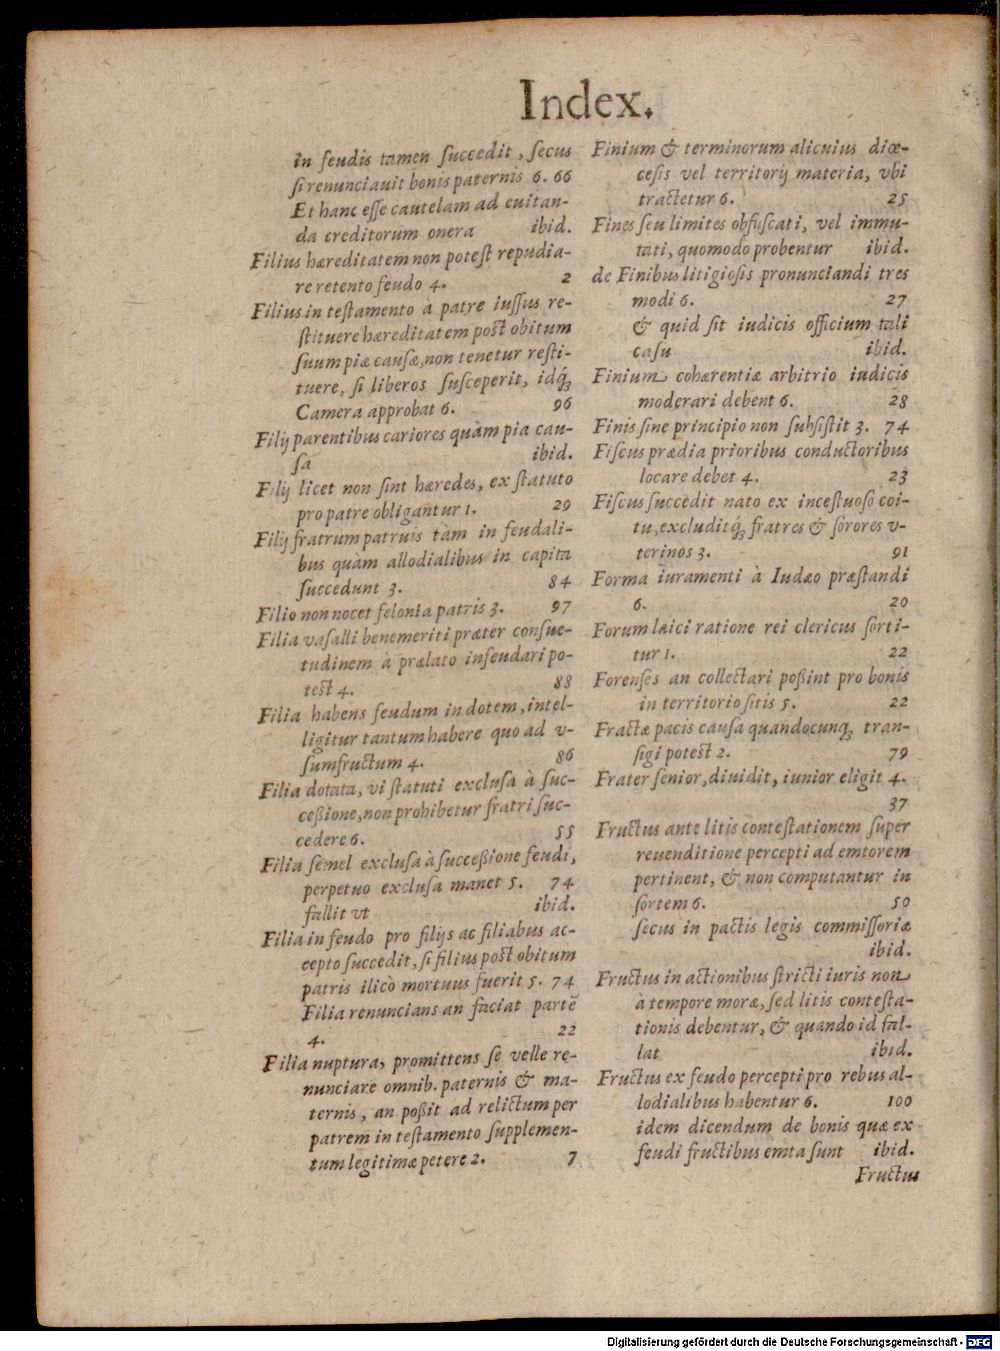 Index.
in feudis tamen ſuccedit, ſecus
ſi renunciauit bonis paternis 6. 66
Et hanc eſſe cautelam ad euitan-
da creditorum onera ibid.
Filius hæreditatem non poteſt repudia-
re retento feudo 4. 2
Filius in teſtamento à patre iuſſus re-
ſtituere hæreditatem poſt obitum
ſuum piæ cauſæ, non tenetur reſti-
tuere, ſi liberos ſuſceperit, idq́ꝫ
Camera approbat 6. 96
Filij parentibus cariores quàm pia cau-
ſa ibid.
Filij licet non ſint hæredes, ex ſtatuto
pro patre obligantur 1. 29
Filij fratrum patruis tàm in feudali-
bus quàm allodialibus in capita
ſuccedunt 3. 84
Filio non nocet felonia patris 3. 97
Filia vaſalli benemeriti præter conſue-
tudinem à prælato infeudari po-
teſt 4. 88
Filia habens feudum in dotem, intel-
ligitur tantum habere quo ad v-
ſumfructum 4. 86
Filia dotata, vi ſtatuti excluſa à ſuc-
ceßione, non prohibetur fratri ſuc-
cedere 6. 55
Filia ſemel excluſa à ſucceßione feudi,
perpetuo excluſa manet 5. 74
fallit vt ibid.
Filia in feudo pro filijs ac filiabus ac-
cepto ſuccedit, ſi filius poſt obitum
patris ilicò mortuus fuerit 5. 74
Filia renuncians an faciat partē
4. 22
Filia nuptura, promittens ſe velle re-
nunciare omnib. paternis & ma-
ternis, an poßit ad relictum per
patrem in teſtamento ſupplemen-
tum legitimæ petere 2. 7
Finium & terminorum alicuius diœ-
ceſis vel territorij materia, vbi
tractetur 6. 25
Fines ſeu limites obfuſcati, vel immu-
tati, quomodo probentur ibid.
de Finibus litigioſis pronunciandi tres
modi 6. 27
& quid ſit iudicis officium tali
caſu ibid.
Finium cohærentiæ arbitrio iudicis
moderari debent 6. 28
Finis ſine principio non ſubſiſtit 3. 74
Fiſcus prædia prioribus conductoribus
locare debet 4. 23
Fiſcus ſuccedit nato ex inceſtuoſo coi-
tu, excluditq́ꝫ fratres & ſorores v-
terinos 3. 91
Forma iuramenti à Iudæo præſtandi
6. 20
Forum laici ratione rei clericus ſorti-
tur 1. 22
Forenſes an collectari poßint pro bonis
in territorio ſitis 5. 22
Fractæ pacis cauſa quandocunqꝫ tran-
ſigi poteſt 2. 79
Frater ſenior, diuidit, iunior eligit 4.
37
Fructus ante litis conteſtationem ſuper
reuenditione percepti ad emtorem
pertinent, & non computantur in
ſortem 6. 50
ſecus in pactis legis commiſſoriæ
ibid.
Fructus in actionibus ſtricti iuris non
à tempore moræ, ſed litis conteſta-
tionis debentur, & quando id fal-
lat ibid.
Fructus ex feudo percepti pro rebus al-
lodialibus habentur 6. 100
idem dicendum de bonis quæ ex
feudi fructibus emta ſunt ibid.
Fructus
Digitalisierung gefördert durch die Deutsche Forschungsgemeinschaft - DFG